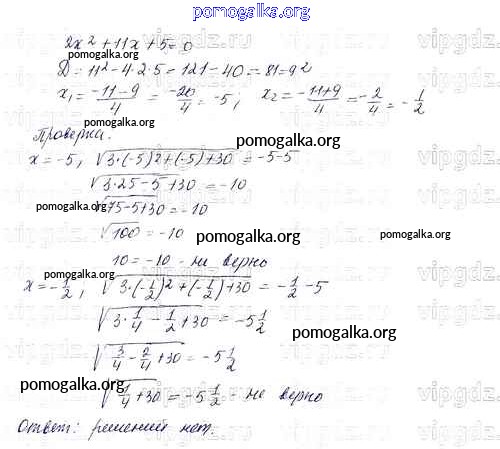 pomogalka.org
2x² + 11x + 5 = 0
pomogalka.org
D = 11² - 4·2·5 = 121 - 40 = 81 = 9²
x₁ = (-11-9)/4 = -20/4 = -5; x₂ = (-11+9)/4 = -2/4 = -1/2
pomogalka.org
Проверка.
pomogalka.org
x = -5, √(3·(-5)²+(-5)+30) = -5-5
pomogalka.org
√(3·25-5+30) = -10
pomogalka.org
√(75-5+30) = -10
√100 = -10
pomogalka.org
10 = -10 - не верно
pomogalka.org
x = -1/2; √(3·(-1/2)²+(-1/2)+30) = -1/2 - 5
√(3·1/4 - 1/2 + 30) = -5 1/2
pomogalka.org
√(3/4 - 2/4 + 30) = -5 1/2
pomogalka.org
√(1/4 + 30) = -5 1/2 - не верно
pomogalka.org
Ответ: решений нет.
pomogalka.org